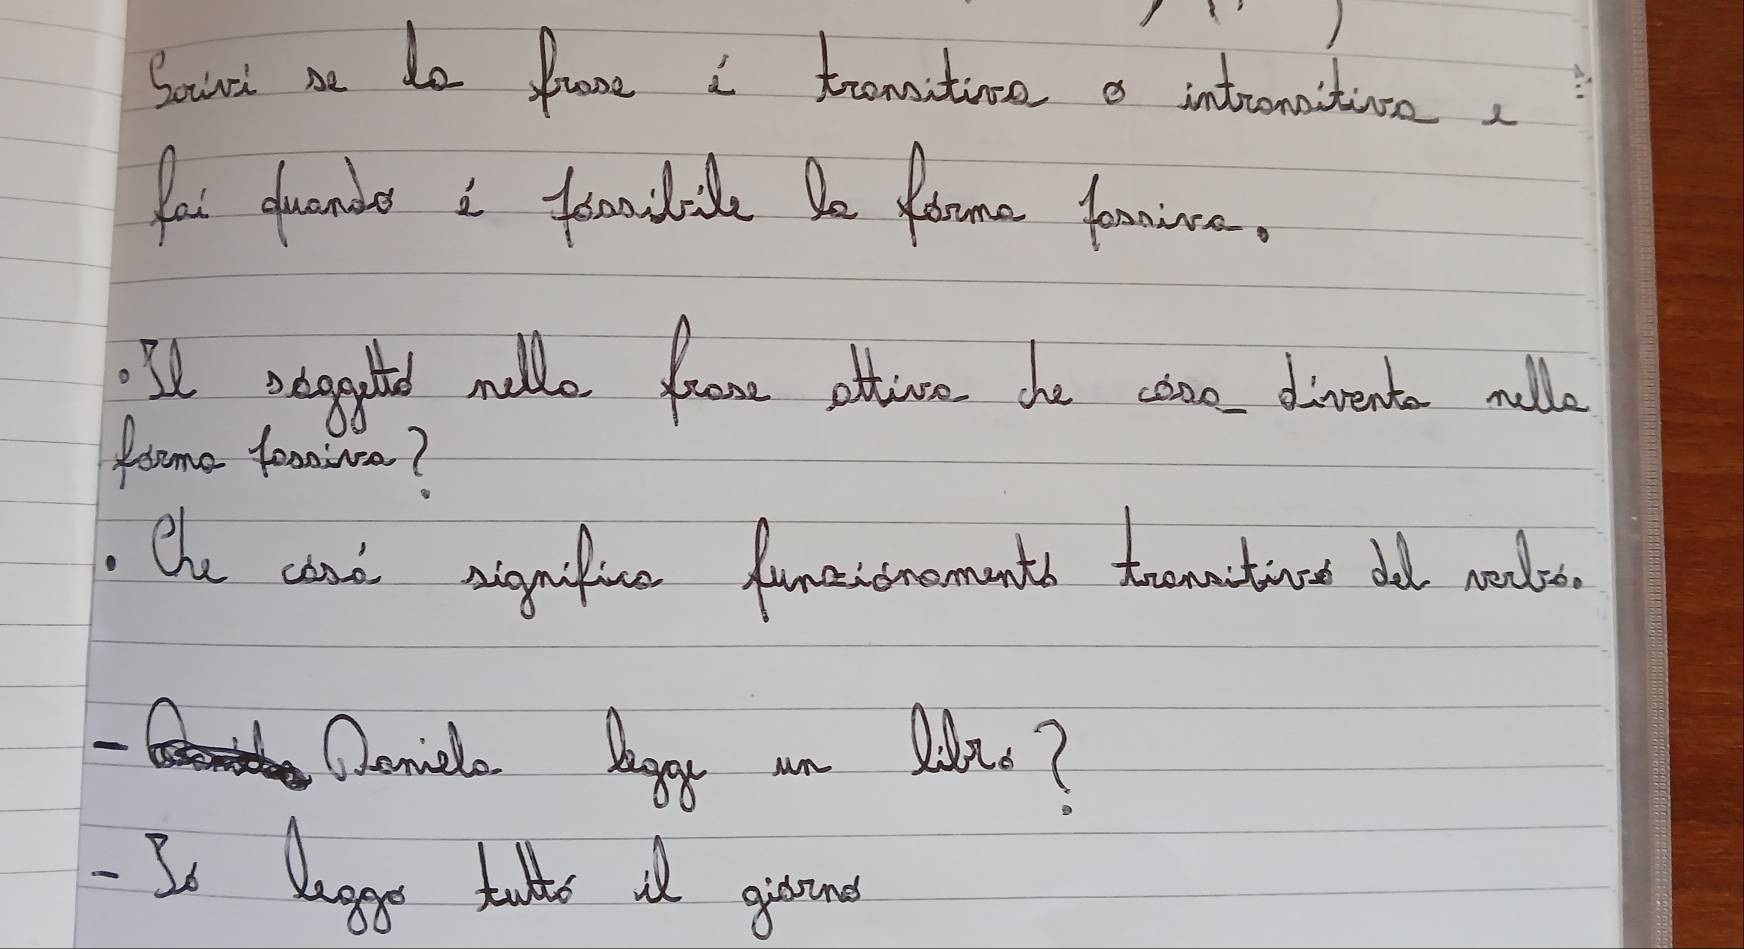 Scrivi se la frase è transitiva o intransitiva e
fai quando è possibile la forma passiva.
• Il soggetto nella frase attiva che cosa diventa nella
forma passiva?
• Che cosa significa funzionamento transitivo del verbo.
- Daniela legge un libro?
- Io leggo tutto il giorno